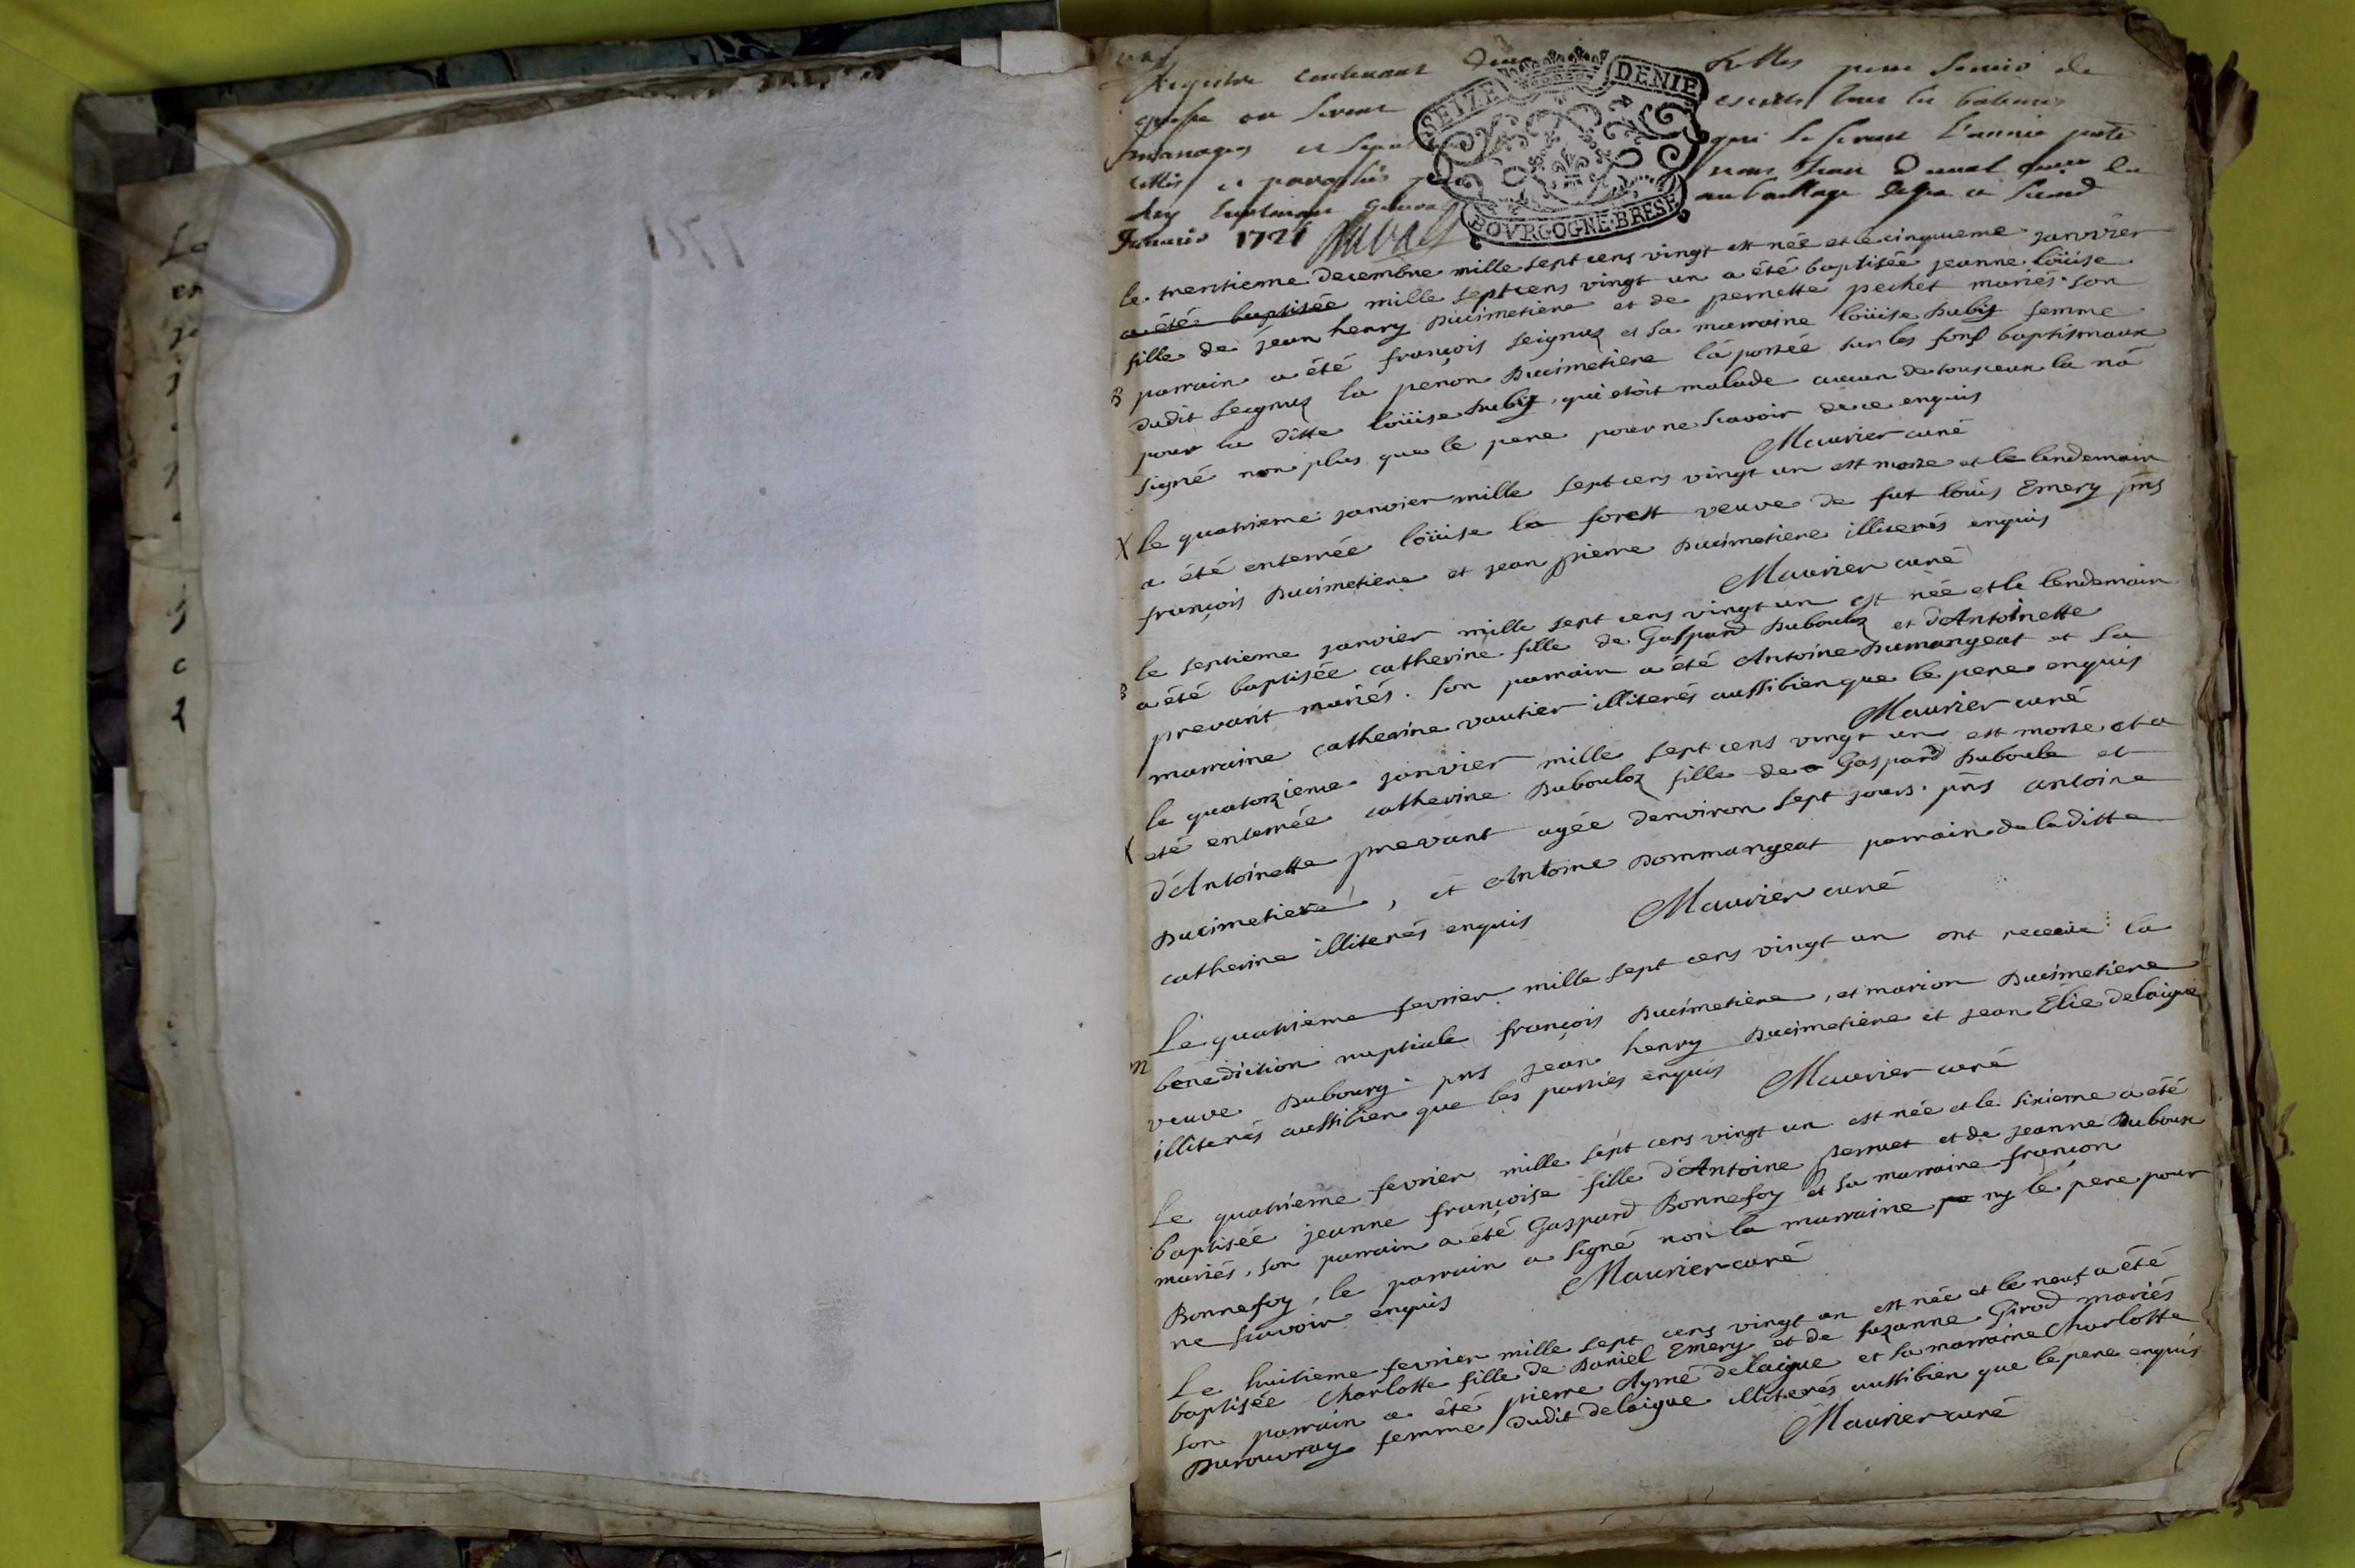 Registre contenant
SEIZE DENIE
BOVRGOGNE·BRESE
mariages et
qui se feront l'année
nous Jean Duval
Janvier 1721 Duval
le trentieme decembre mille sept cens vingt est née et le cinquieme janvier
a été baptisée mille sept cens vingt un a été baptisée jeanne loüise
fille de jean henry Ducimetiere et de pernette pechet mariés. son
B parrain a été françois seignuz et sa marraine loüise Dubij femme
dudit seignuz la peron Ducimetiere lá portée sur les fonf baptismaux
pour la ditte loüise Dubij, qui etoit malade aucun de tous ceux la ná
signé non plus que le pere pour ne scavoir de ce enquis
Maurier curé
X Le quatrieme janvier mille sept cens vingt un est morte et le lendemain
a été enterrée loüise la forest veuve de fut loüis Emery pñs
françois Ducimetiere et jean pierre Ducimetiere illiterés enquis
Maurier curé
le septieme janvier mille sept cens vingt un est née et le lendemain
B a été baptisée catherine fille de Gaspard Dubouloz et d'Antoinette
prevant mariés. son parrain a été Antoine Dumangeat et sa
marraine catherine vautier illiterés aussibien que le pere enquis
Maurier curé
le quatorzieme janvier mille sept cens vingt un est morte et a
X eté enterrée catherine Dubouloz fille de Gaspard Duboule et
d'Antoinette prevant agée denviron sept jours. pñs antoine
Ducimetiere, et Antoine Dommangeat parrain de la ditte
catherine illiterés enquis Maurier curé
Le quatrieme fevrier mille sept cens vingt un ont receue la
m benediction nuptiale françois Ducimetiere, et marion Ducimetiere
veuve Dubourg. pñs jean henry Ducimetiere et jean Elie delaigue
illiterés aussibien que les parties enquis Maurier curé
Le quatrieme fevrier mille sept cens vingt un est née et le sixieme a été
baptisée jeanne françoise fille d'Antoine perruet et de jeanne Duboux
mariés, son parrain a été Gaspard Bonnefoy et sa marraine françon
Bonnefoy, le parrain a signé non la marraine ny le pere pour
ne scavoir enquis Maurier curé
Le huitieme fevrier mille sept cens vingt un est née et le neuf a été
baptisée Charlotte fille de Daniel Emery et de suzanne Girod mariés
son parrain a été pierre Aymé delaigue et sa marraine Charlotte
Durouvray femme dudit delaigue illiterés aussibien que le pere enquis
Maurier curé